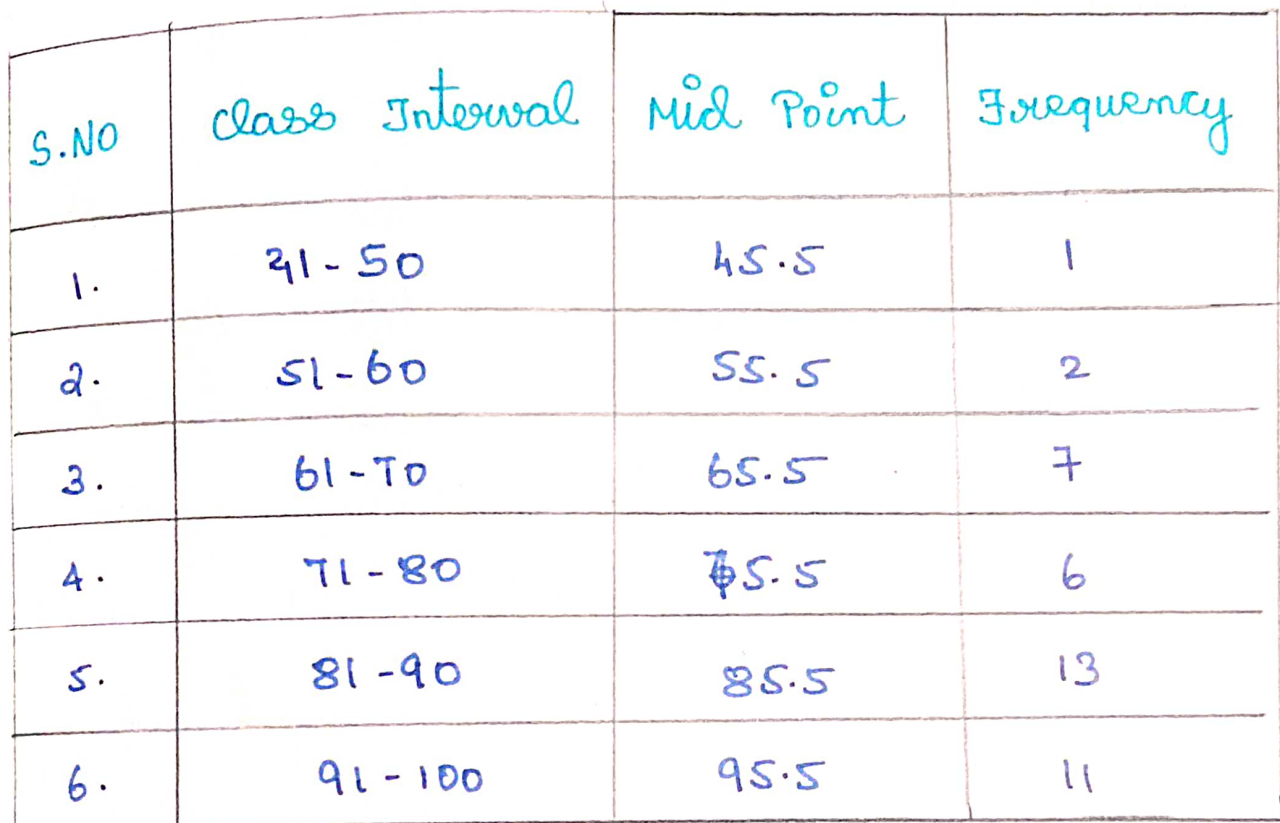 S.NO Class Interval Mid Point Frequency
1. 41-50 45.5 1
2. 51-60 55.5 2
3. 61-70 65.5 7
4. 71-80 75.5 6
5. 81-90 85.5 13
6. 91-100 95.5 11